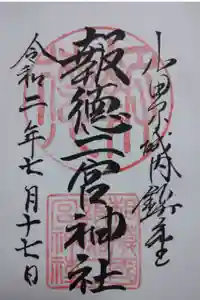 小田原城内鎮座
報徳二宮神社
令和二年七月十七日